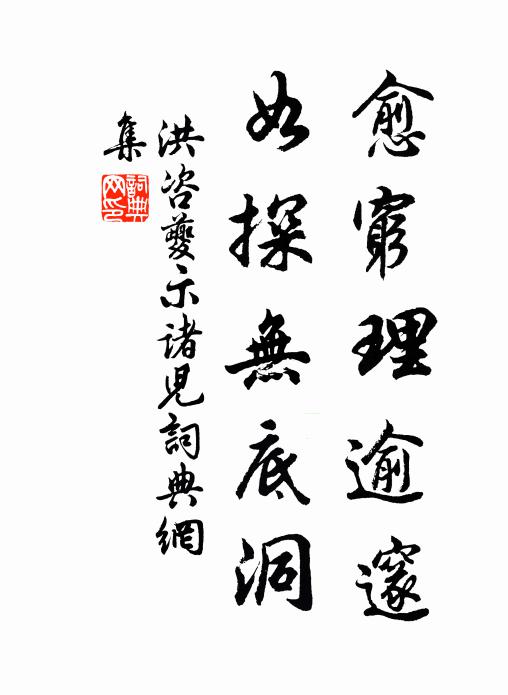 愈窮理逾邃
如探無底洞
洪咨夔示諸児詞典網
集
詞典网印